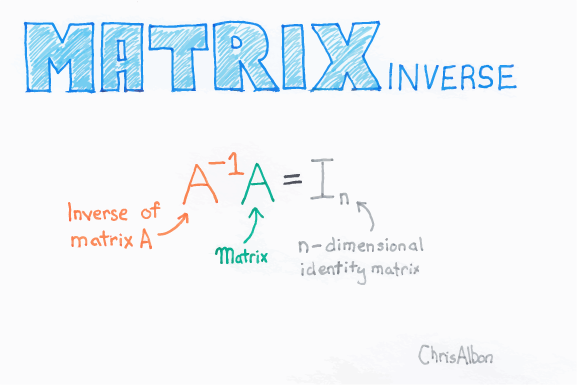 MATRIX INVERSE
A⁻¹A = Iₙ
Inverse of
matrix A
Matrix
n-dimensional
identity matrix
ChrisAlbon